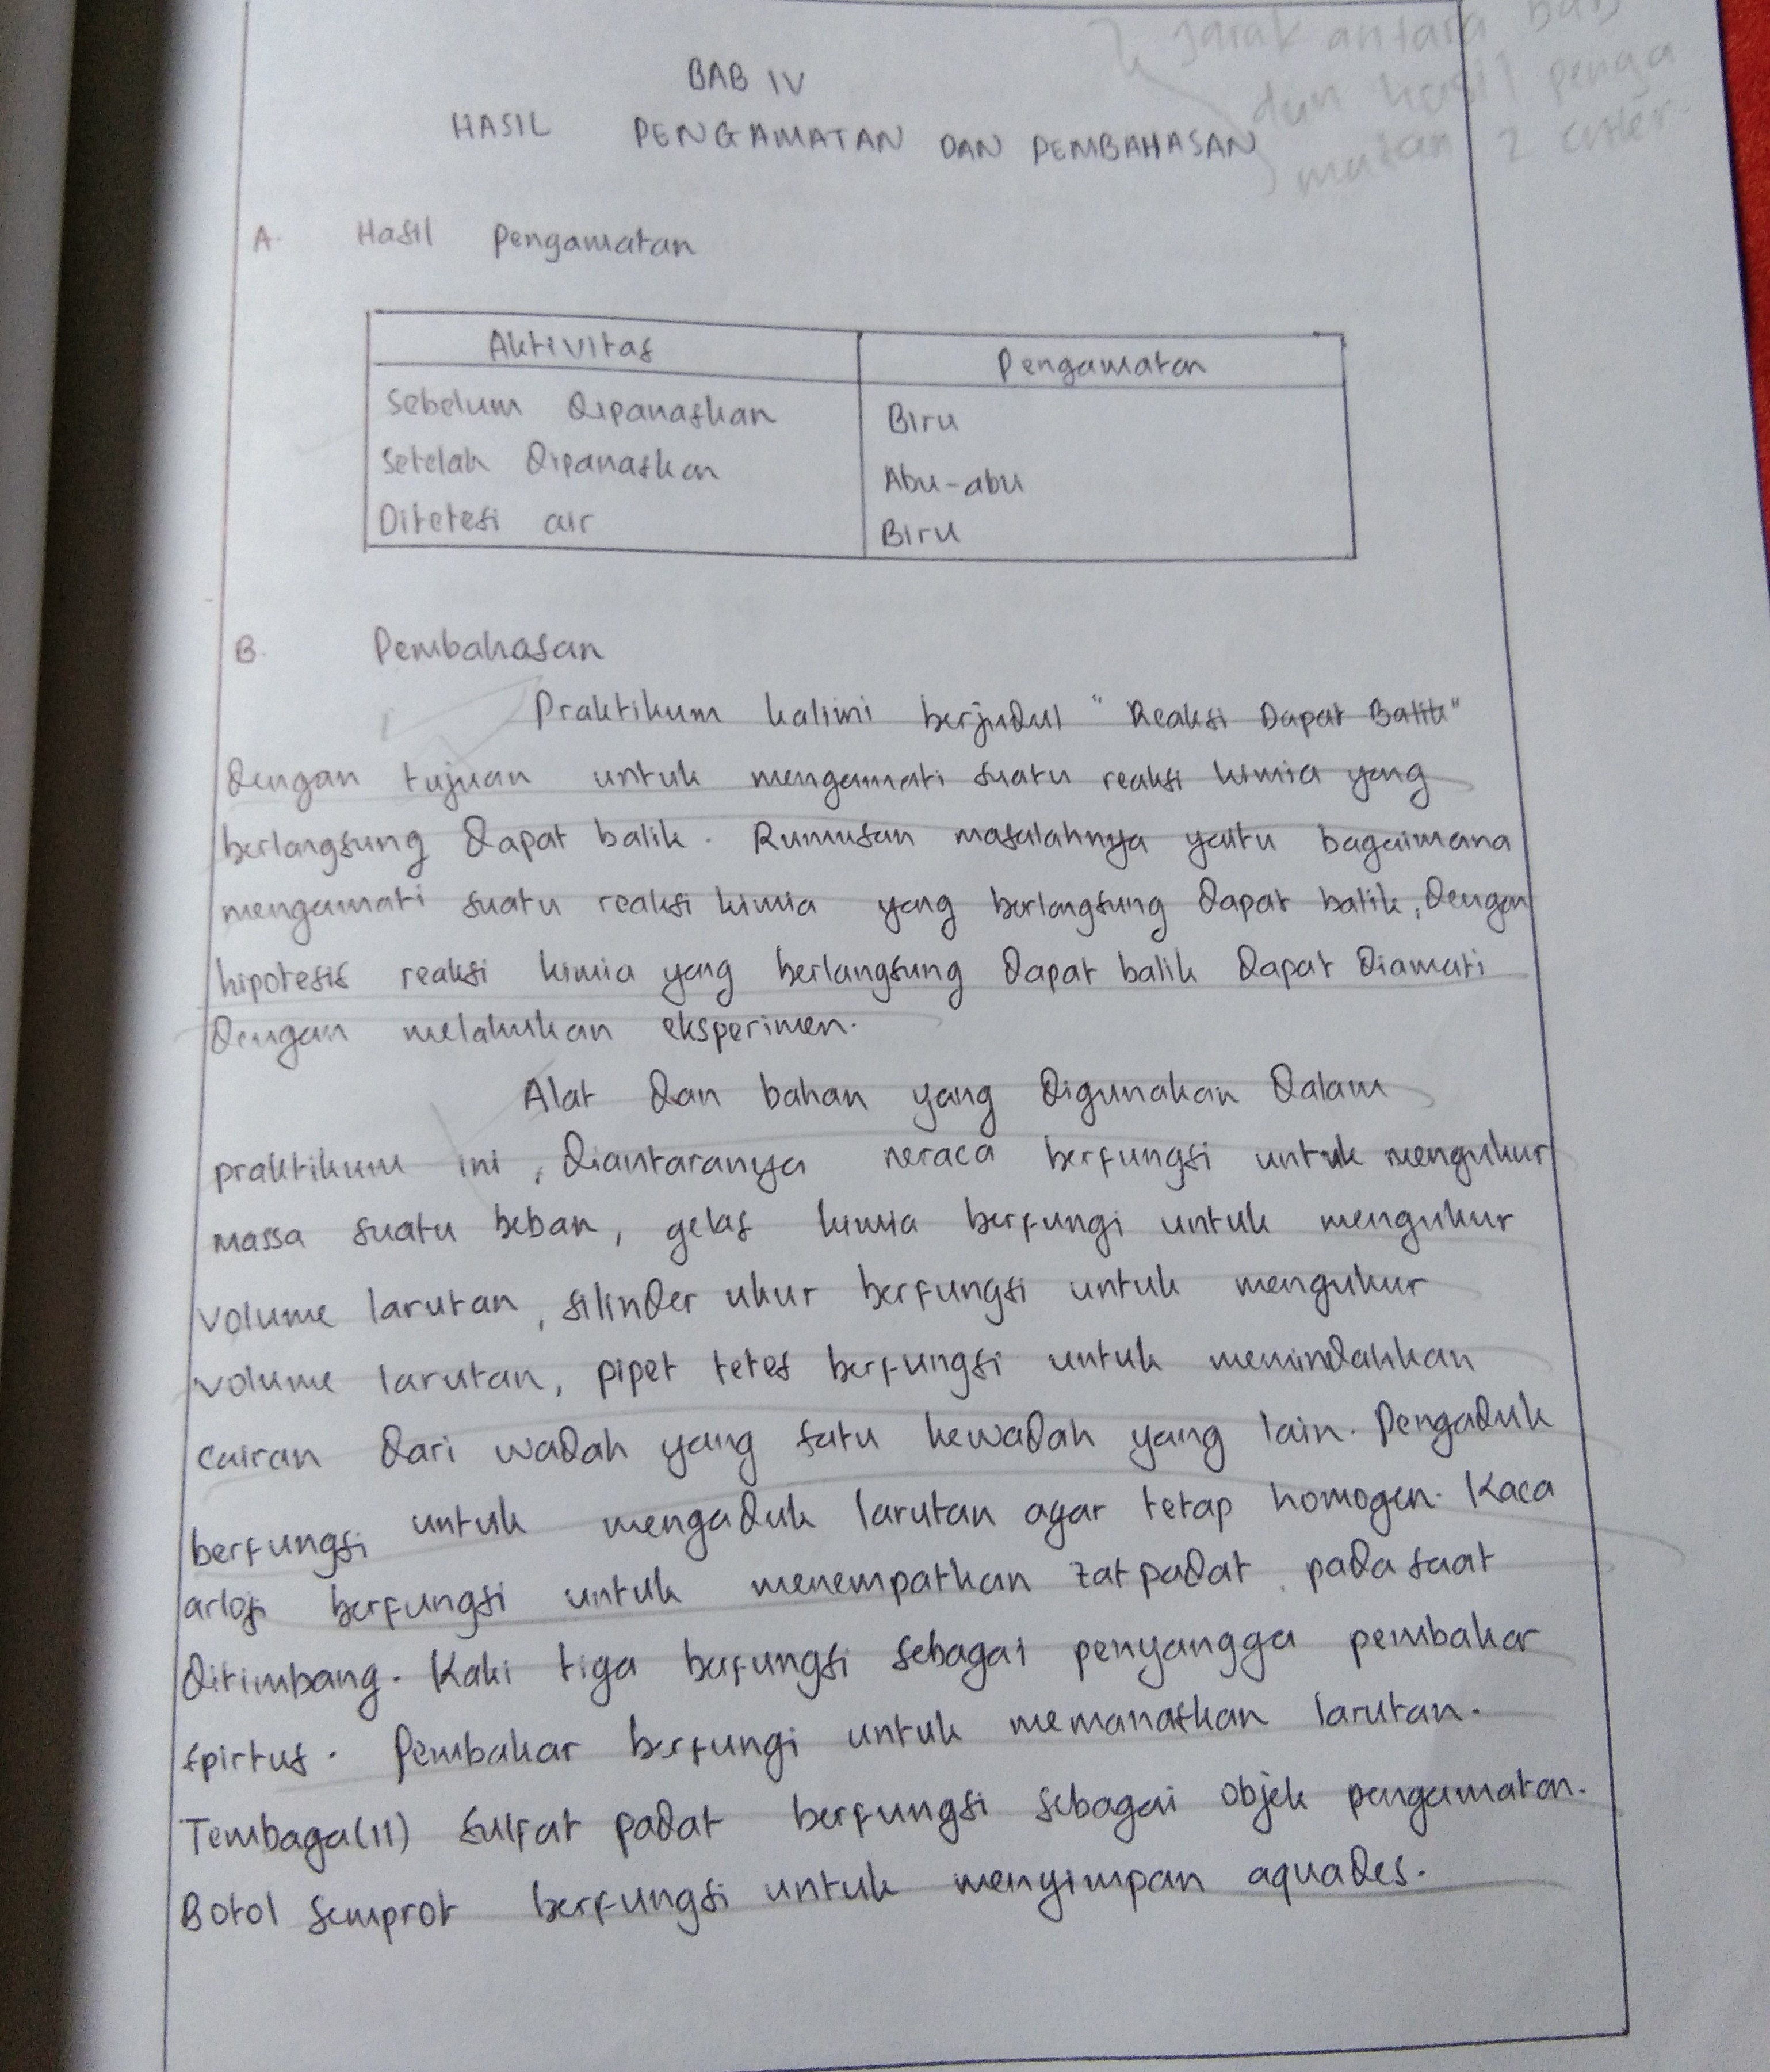 Jarak antara bab
dan hasil penga
matan 2 enter.
BAB IV
HASIL PENGAMATAN DAN PEMBAHASAN
A. Hasil Pengamatan
Aktivitas Pengamatan
Sebelum Dipanaskan Biru
Setelah Dipanaskan Abu-abu
Ditetesi air Biru
B. Pembahasan
Praktikum kalini berjudul "Reaksi Dapat Balik"
dengan tujuan untuk mengamati suatu reaksi kimia yang
berlangsung dapat balik. Rumusan masalahnya yaitu bagaimana
mengamati suatu reaksi kimia yang berlangsung dapat balik, dengan
hipotesis reaksi kimia yang berlangsung dapat balik dapat diamati
dengan melakukan eksperimen.
Alat dan bahan yang digunakan dalam
praktikum ini, diantaranya neraca berfungsi untuk mengukur
massa suatu beban, gelas kimia berfungi untuk mengukur
volume larutan, silinder ukur berfungsi untuk mengukur
volume larutan, pipet tetes berfungsi untuk memindahkan
cairan dari wadah yang satu kewadah yang lain. Pengaduk
berfungsi untuk mengaduk larutan agar tetap homogen. Kaca
arloji berfungsi untuk menempatkan zat padat pada saat
ditimbang. Kaki tiga berfungsi sebagai penyangga pembakar
spirtus. Pembakar berfungi untuk memanaskan larutan.
Tembaga(II) sulfat padat berfungsi sebagai objek pengamatan.
Botol semprot berfungsi untuk menyimpan aquades.